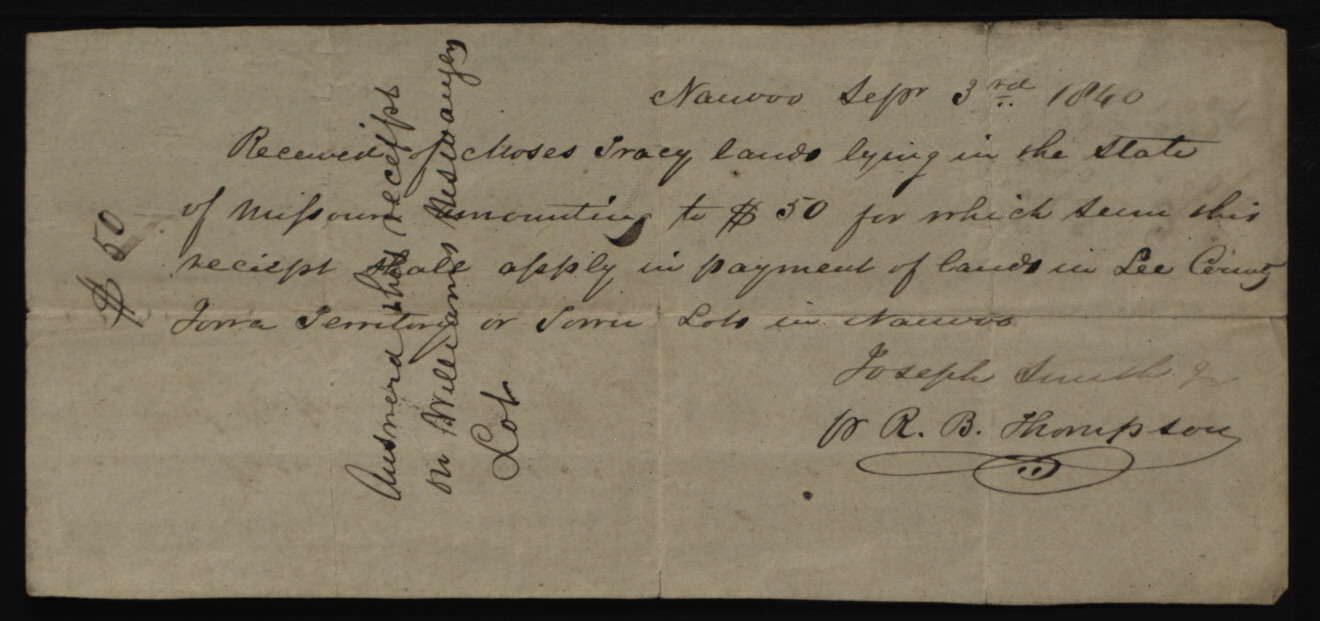 Nauvoo Sepr 3rd 1840
Received of Moses Tracy lands lying in the State
of Missouri amounting to $50 for which sum this
reciept shall apply in payment of lands in Lee County
Iowa Territory or Town Lots in Nauvoo
Joseph Smith Jr
pr R. B. Thompson
$50
this receipt
on Williams
Lot